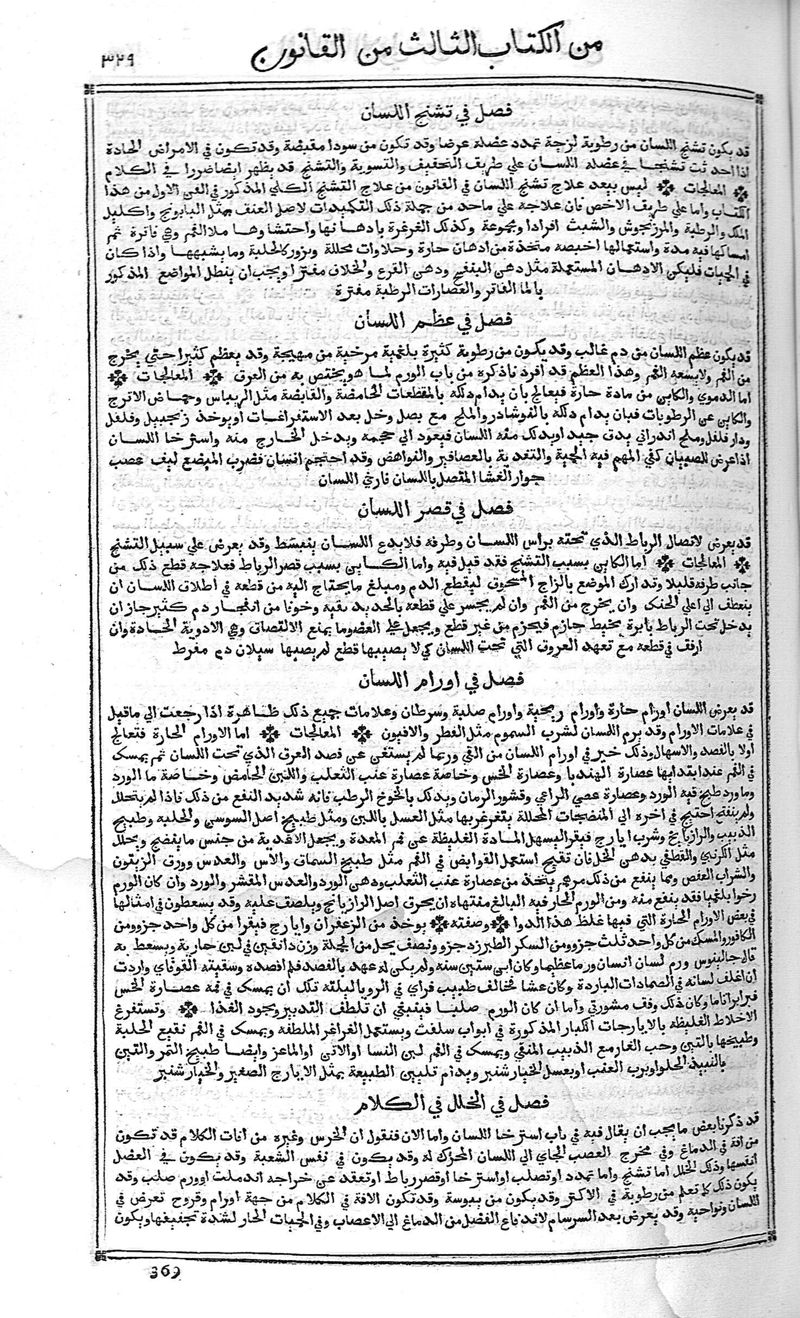 من الكتاب الثالث من القانون
٣٢٩
فصل في تشنج اللسان
قد يكون تشنج اللسان من رطوبة لزجة تمدد عضله عرضا وقد تكون من سودا مقبضة وقد تكون في الامراض الحادة
اذا احدثت تشنجا في عضلة اللسان علي طريف التجفيف والتسوية والتشنج قد يظهر ايضا ضررا في الكلام
المعالجات ليس يبعد علاج تشنج اللسان في القانون من علاج التشنج الكلي المذكور في الفن الاول من هذا
الكتاب واما علي طريف الاخص فان علاجه علي ماحد من جملة ذلك التكميدات لاصل العنف بمثل البابونج واكليل
الملك والرطبة والمرزنجوش والشبث افرادا ومجموعة وكذلك الغرغرة بادهانها واحتشاوها ملا الفم وهي فاترة ثم
امساكها فيه مدة واستعمالها اخبصه متخذة من ادهان حارة وحلاوات محللة وبزور كالحلبة وما يشبهها واذا كان
في الحميات فليكن الادهان المستعملة مثل دهن البنفسج ودهن القرع والخلاف مفترا ويجب ان ينطل المواضع المذكور
بالما الفاتر والعصارات الرطبة مفترة
فصل في عظم اللسان
قد يكون عظم اللسان من دم غالب وقد يكون من رطوبة كثيرة بلغمية مرخية من مهيجة وقد يعظم كثيرا حتي يخرج
من الفم ولا يسعه الفم وهذا العظم قد افرد ناذكره من باب الورم لما هو يختص به من العرق المعالجات
اما الدموي والكاين من مادة حارة فيعالج بان يدام دلكه بالمقطعات الحامضة والقابضة مثل الريباس وحماض الاترج
والكاين عن الرطوبات فبان يدام دلكه بالنوشادر والملح مع بصل وخل بعد الاستفراغات او يوخذ زنجبيل وفلفل
ودار فلفل وملح اندراني يدق جيد او يدلك منه اللسان فيعود الي حجمه ويدخل الخارج منه واسترخا اللسان
اذا عرض للصبيان كفي المهم فيه الحمية والتغدية بالعصافير والنواهض وقد احتجم انسان فضرب المبضع ليف عصب
جوار الغشا المتصل باللسان
فصل في قصر اللسان
قد يعرض لاتصال الرباط الذي تحته براس اللسان وطرفه فلا يدع اللسان ينبسط وقد يعرض علي سبيل التشنج
المعالجات اما الكاين بسبب التشنج فقد قيل فيه واما الكاين بسبب قصر الرباط فعلاجه قطع ذلك من
جانب طرفه قليلا وتدارك الموضع بالزاج المسحوق ليقطع الدم ومبلغ ما يحتاج اليه من قطعه في اطلاق اللسان ان
ينعطف الي اعلي الحنك وان يخرج من الفم وان لم يجسر علي قطعه بالحديد تقية وخوفا من انفجار دم كثير جاز ان
يدخل تحت الرباط بابرة بخيط جازم فيحزم من غير قطع ويجعل علي العضو ما يمنع الالتصاق وهي الادوية الحادة وان
ارفق في قطعه مع تعهد العروق التي تحت اللسان كي لا يصيبها قطع لم يصبها سيلان دم مفرط
فصل في اورام اللسان
قد يعرض اللسان اورام حارة واورام ريحية واورام صلبة وسرطان وعلامات جميع ذلك ظاهرة اذا رجعت الي ماقيل
في علامات الاورام وقد يرم اللسان لشرب السموم مثل الفطر والافيون المعالجات اما الاورام الحارة فتعالج
اولا بالفصد والاسهال وذلك خير في اورام اللسان من القي وربما لم يستغن عن فصد العرق الذي تحت اللسان ثم يمسك
في الفم عند ابتدايها عصارة الهندبا وعصارة الخس وخاصة عصارة عنب الثعلب واللبن الحامض وخاصة ما الورد
وما ورد طبخ فيه الورد وعصارة عصي الراعي وقشور الرمان ويدلك بالخوخ الرطب فانه شديد النفع من ذلك فاذا لم يتحلل
ولم ينفتح احتيج في اخره الي المنضجات المحللة يتغرغر بها مثل العسل باللبن ومثل طبيخ اصل السوسن والحلبة وطبيخ
الذبيب والرازيانج وشرب ايارج فيقرا ليسهل المادة الغليظة عن فم المعدة ويجعل الاغدية من جنس ما ينضج ويحلل
مثل الكرنب والقطف بدهن الخل فان تقيح استعمل القوابض في الفم مثل طبيخ السماق والاس والعدس وورق الزيتون
والشراب العفص ومما ينفع من ذلك مرهم يتخذ من عصارة عنب الثعلب ودهن الورد والعدس المقشر والورد وان كان الورم
رخوا بلغميا فقد ينفع منه ومن الورم الحار فيه البالغ منتهاه ان يحرق اصل الرازيانج ويلصف عليه وقد يسعطون في امثالها
في بعض الاورام الحارة التي فيها غلظ هذا الدوا وصفته يوخذ من الزعفران وايارج فيقرا من كل واحد جزو ومن
الكافور والمسك من كل واحد ثلث جزو ومن السكر الطبرزد جزو ونصف يحل من الجملة وزن دانقين في لبن جارية ويسعط به
قال جالينوس ورم لسان انسان ورما عظيما وكان ابن ستين سنه ولم يكن له عهد بالفصد فلم افصده وسقيته القوقاي واردت
ان اغلف لسانه في الضمادات الباردة وكان عشا فخالف طبيب فراي في الرويا ليلته تلك ان يمسك في فمه عصارة الخس
فبرا برا تاما وكان ذلك وفق مشورتي واما ان كان الورم صلبا فينبغي ان تلطف التدبير ويجود الغذا وتستفرغ
الاخلاط الغليظه بالايارجات الكبار المذكورة في ابواب سلفت ويستعمل الغراغر الملطفه ويمسك في الفم نقيع الحلبة
وطبيخها بالتين وحب الغار مع الذبيب المنقي ويمسك في الفم لبن النسا او الاتن او الماعز وايضا طبيخ التمر والتين
بالنبيذ الحلو او برب العنب او بعسل الخيار شنبر ويدام تليين الطبيعة بمثل الايارج الصغير والخيار شنبر
فصل في الخلل في الكلام
قد ذكرنا بعض ما يجب ان يقال فيه في باب استرخا اللسان واما الان فنقول ان الخرس وغيره من افات الكلام قد تكون
من افة في الدماغ وفي مخرج العصب الجاي الي اللسان المحرك له وقد يكون في نفس الشعبة وقد يكون في العضل
انفسها وذلك الخلل اما تشنج واما تمدد او تصلب او استرخا او قصر رباط او تعقد عن خراجه اندملت او ورم صلب وقد
يكون ذلك كما تعلم من رطوبة في الاكثر وقد يكون من يبوسة وقد تكون الافة في الكلام من جهة اورام وقروح تعرض في
اللسان ونواحيه وقد يعرض بعد السرسام لاندفاع الفضل من الدماغ الي الاعصاب وفي الحميات الحار لشدة تجفيفها ويكون
369